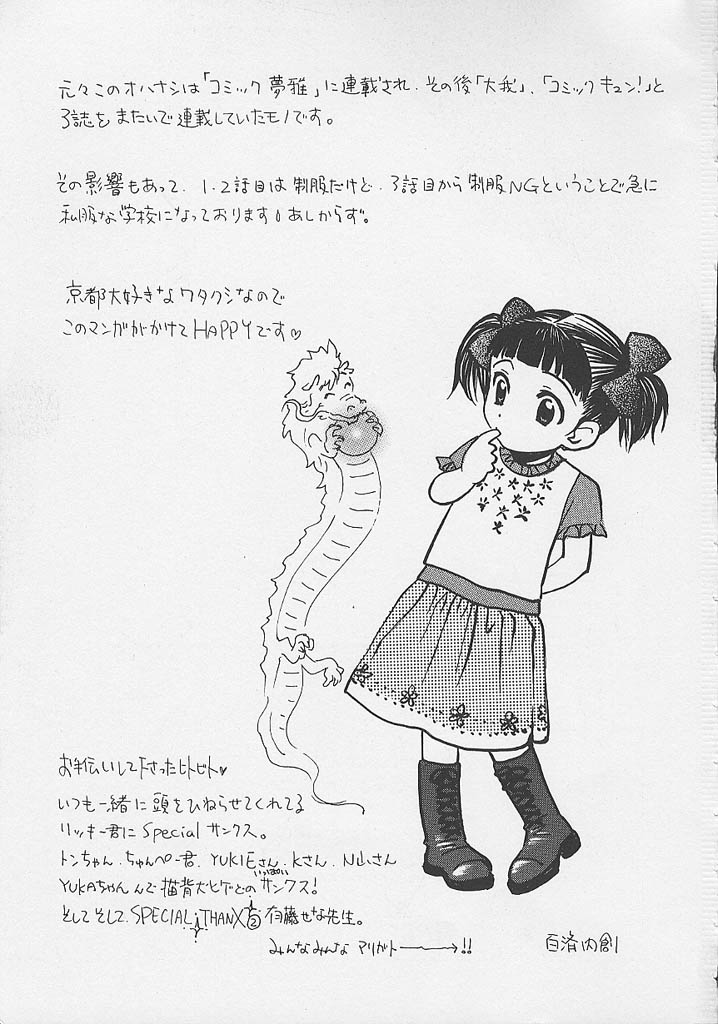 元々このオハナシは「コミック夢雅」に連載され、その後「大我」、「コミックキュン!」と
3誌をまたいで連載していたモノです。
その影響もあって、1、2話目は制服だけど、3話目から制服NGということで急に
私服な学校になっております。あしからず。
京都大好きなワタクシなので
このマンガがかけてHAPPYです♡
お手伝いして下さったヒトビト♡
いつも一緒に頭をひねらせてくれてる
リッキー君にSpecialサンクス。
トンちゃん、ちゃんペー君、YUKIEさん、Kさん、N山さん
YUKAちゃん んで猫背犬ヒゲどの サンクス!
いっぱい
そしてそして、SPECIAL THANX② 有藤せな先生。
みんなみんな アリガト→!!
百済内創